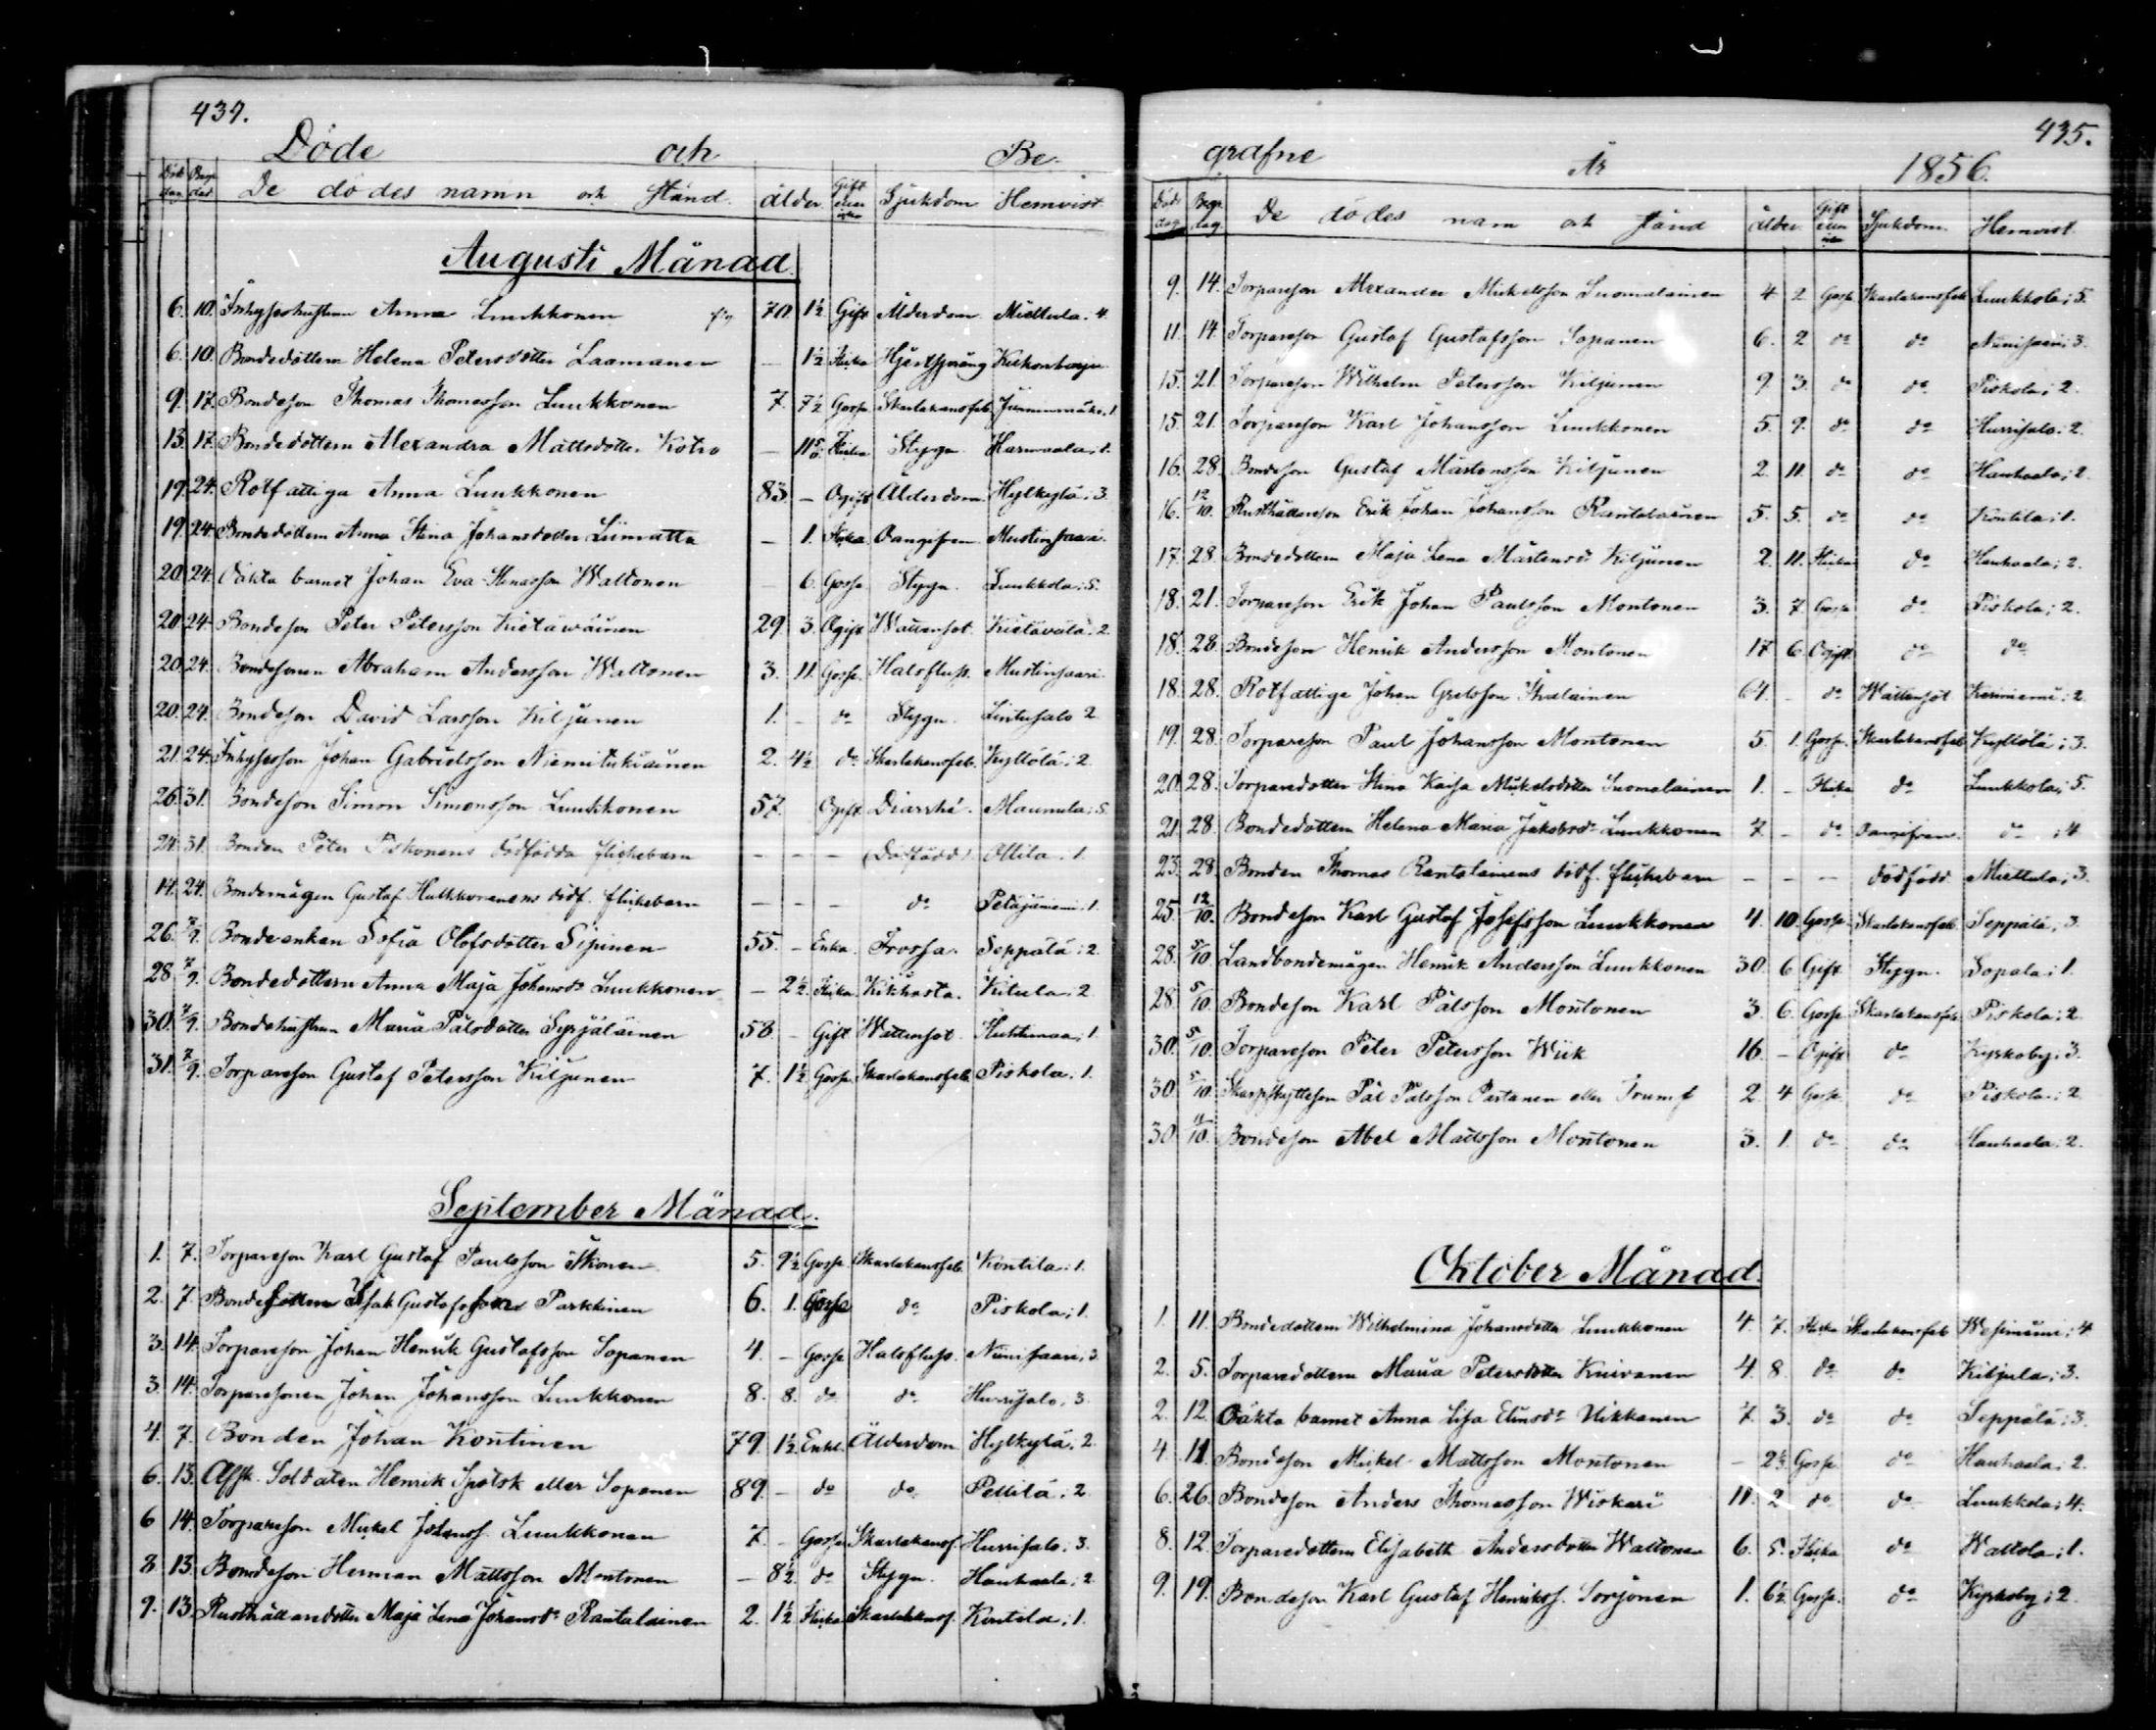 437.
Döde och Be-
Död dag Begr. dag De dödes namn och stånd. ålder. Gift eller icke Sjukdom Hemvist
Augusti Månad
6. 10. Inhyseshustrun Anna Luukkonen 70. 1½ Gift Ålderdom Miettula. 4.
6. 10. Bondedottern Helena Petersdotter Laamanen — 1½ Flicka Hjertsprång
9. 17. Bondeson Thomas Thomasson Luukkonen 7. 7½ Gosse Skarlakansfeb. 1.
13. 17. Bondedottern Alexandra Mattsdotter Kotro — Flicka Stygn Harmaala; 1.
19. 24. Rotfattiga Anna Luukkonen 83. — Ogift Ålderdom Hylkylä; 3.
19. 24. Bondedottern Anna Stina Johansdotter Liimatta — 1. Flicka Oangifven Mustinsaari
20. 24. Oäkta barnet Johan Eva Stinasson Waltonen — 6. Gosse Stygn. Luukkola; 5.
20. 24. Bondeson Peter Petersson Kietäwäinen 29 3. Ogift Wattensot. Kietävälä. 2.
20. 24. Bondesonen Abraham Andersson Waltonen 3. 11. Gosse. Halsfluss. Mustinsaari.
20. 24. Bondeson David Larsson Kiljunen 1. – do Stygn. Lintusalo 2.
21. 24. Inhysesson Johan Gabrielsson Niemitukiainen 2. 4½ do Skarlakansfeb. Kyllölä; 2.
26. 31. Bondeson Simon Simonsson Luukkonen 57. Ogift Diarrhé. Maunula; 5.
24. 31. Bonden Peter Piskonens dödfödda flickebarn — — — (Dödfödd) Ollila. 1.
14. 24. Bondemågen Gustaf Hulkkonenens dödf. flickebarn — — — do Petäjäniemi. 1.
26. 7/9. Bondeenkan Sofia Olofsdotter Sipinen 55. – Enka. Frossa. Seppälä; 2.
28. 7/9. Bondedottern Anna Maja Johansdr Luukkonen — 2½. Flicka. Kikhosta. Kitula. 2.
30. 7/9. Bondehustrun Maria Pålsdotter Syrjäläinen 58. – Gift Wattensot. Huhtimaa; 1.
31. 7/9. Torpareson Gustaf Petersson Kiljunen 7. 1½ Gosse. Skarlakansfeb. Piskola. 1.
September Månad.
1. 7. Torpareson Karl Gustaf Paulsson Ikonen 5. 9½ Gosse Skarlakansfeb. Kontila: 1.
2. 7. Isak Gustafsson Parkkinen 6. 1. Gosse do Piskola; 1.
3. 14. Torpareson Johan Henrik Gustafsson Sopanen 4. – Gosse Halsfluss. Niinisaari; 3.
3. 14. Torparesonen Johan Johansson Luukkonen 8. 8. do do Hurrisalo, 3.
4. 7. Bonden Johan Kontinen 79. 1½. Enkl. Ålderdom Hylkylä. 2.
6. 13. Afsk. Soldaten Henrik Spetsk eller Sopanen 89. – do do Pellilä. 2.
6 14. Torpareson Mickel Johanss. Luukkonen 7. – Gosse Skarlakansf. Hurrisalo. 3.
8. 13. Bondeson Herman Mattsson Montonen — 8½ do Stygn. Hauhaala; 2.
9. 13. Rusthållaredotter Maja Lena Johansdr Rantalainen 2. 1½ Flicka Skarlakansf. Kontila; 1.
435.
grafne År 1856.
Döds dag Begr. dag De dödes nam och stånd ålder. Gift eller icke Sjukdom. Hemvist.
9. 14. Torpareson Alexander Mickelsson Suomalainen 4. 2. Gosse Skarlakansfeb. Luukkola; 5.
11. 14. Torpareson Gustaf Gustafsson Sopanen 6. 2 do do Niinisaari; 3.
15. 21. Torpareson Wilhelm Petersson Kiljunen 9. 3. do do Piskola; 2.
15. 21. Torpareson Karl Johansson Luukkonen 5. 9. do do Hurrisalo. 2.
16. 28. Bondeson Gustaf Mårtensson Kiljunen 2. 11. do do Hauhaala; 2.
16. 12/10. Rusthållareson Erik Johan Johansson Rantalainen 5. 5. do do Kontila: 1.
17. 28. Bondedottern Maja Lena Mårtensdr Kiljunen 2. 11. Flicka do Hauhaala; 2.
18. 21. Torpareson Erik Johan Paulsson Montonen 3. 7. Gosse do Piskola; 2.
18. 28. Bondeson Henrik Andersson Montonen 17 6. Ogift do do
18. 28. Rotfattige Johan Gretsson Ihalainen 64. – do Wattensot Kerniemi; 2.
19. 28. Torpareson Paul Johansson Montonen 5. 1. Gosse. Skarlakansfeb. Kyllölä; 3.
20. 28. Torparedotter Stina Kaisa Mickelsdotter Suomalainen 1. – Flicka do Luukkola; 5.
21. 28. Bondedottern Helena Maria Jakobsdr Luukkonen 7. – do Oangifven. do ; 4
23. 28. Bonden Thomas Rantalainens dödf. flickebarn – – — dödfödd Miettula; 3.
25. 12/10. Bondeson Karl Gustaf Josefsson Luukkonen 4. 10. Gosse. Skarlakansfeb. Seppälä; 3.
28. 5/10 Landbondemågen Henrik Andersson Luukkonen 30. 6. Gift Stygn. Sopala; 1.
28. 5/10. Bondeson Karl Pålsson Montonen 3. 6. Gosse Skarlakansfeb. Piskola; 2.
30. 5/10. Torpareson Peter Petersson Wiik 16. – Ogift do Kyrkoby; 3.
30. 5/10. Skarpskytteson Pål Pålsson Partanen eller Trumf 2. 4 Gosse. do Piskola; 2.
30. Bondeson Abel Mattsson Montonen 3. 1. do do Hauhaala. 2.
Oktober Månad.
1. 11. Bondedottern Wilhelmina Johansdotter Luukkonen 4. 7. Flicka Skarlakansfeb. 4.
2. 5. Torparedottern Maria Petersdotter Kuivanen 4. 8. do do Kiljula; 3.
2. 12. Oäkta barnet Anna Lisa Elinsdr Nikkanen 7. 3. do do Seppälä; 3.
4. 11. Bondeson Mickel Mattsson Montonen — 2½ Gosse. do Hauhaala; 2.
6. 26. Bondeson Anders Thomasson Wiskari 11. 2 do do Luukkola; 4.
8. 12. Torparedottern Elisabeth Andersdotter Waltonen 6. 5. Flicka do Waltola; 1.
9. 19. Bondeson Karl Gustaf Henrikss. Sorjonen 1. 6½. Gosse. do Kyrkoby; 2.